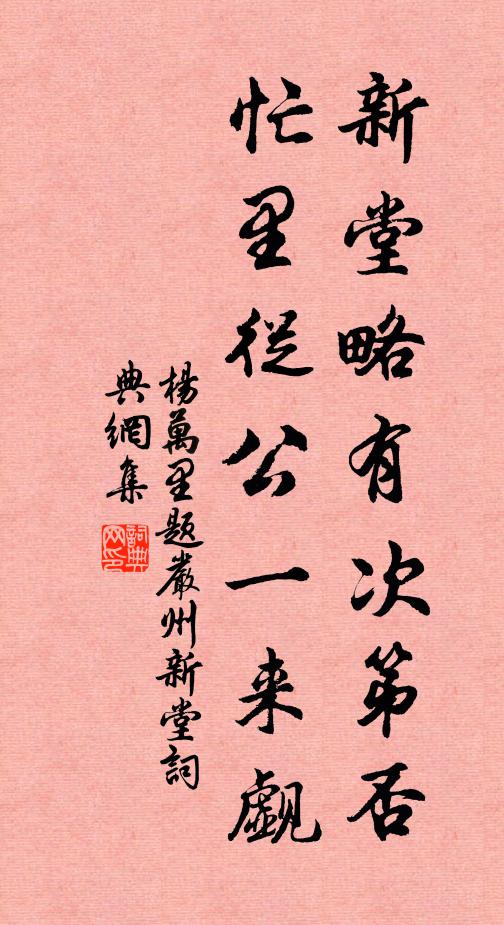 新堂略有次第否
忙里從公一来覷
楊萬里题嚴州新堂詞
典網集
詞典
网印